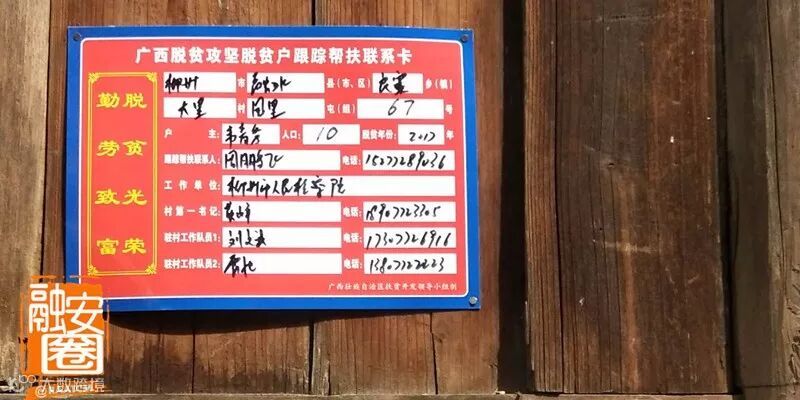 广西脱贫攻坚脱贫户跟踪帮扶联系卡
脱贫光荣
勤劳致富
柳州 市 融水 县(市、区) 良寨 乡(镇)
大里 村 国里 屯(组) 67 号
户 主: 韦 人口: 10 脱贫年份: 2017 年
跟踪帮扶联系人: 周鹏飞 电话:
工作单位: 柳州市人民检察院
村第一书记: 电话: 18907723305
驻村工作队员1: 刘 电话: 17307726916
驻村工作队员2: 电话:
广西壮族自治区扶贫开发领导小组制
融安圈
大数跨境